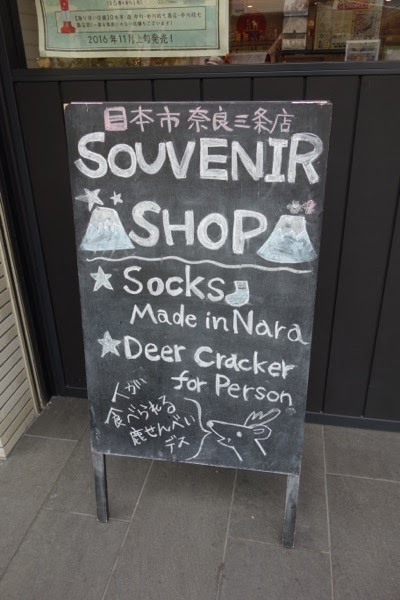 2016年11月上旬発売!
日本市 奈良三条店
SOUVENIR
SHOP
Socks
Made in Nara
Deer Cracker
for Person
人が
食べられる
鹿せんべい
デス